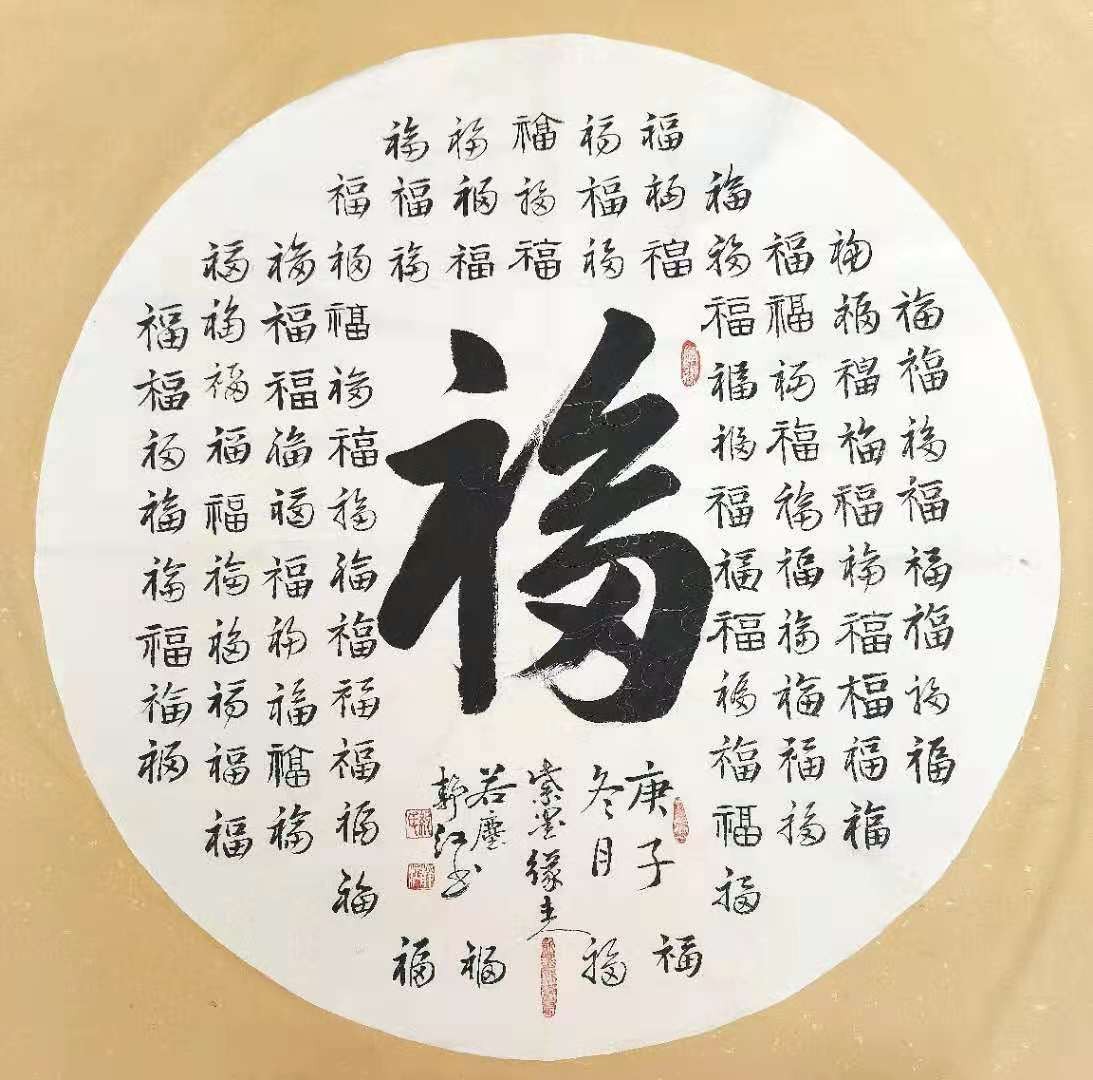 福福福福福
福福福福福福福
福福福福福福福福福福福
福福福福 福福福福
福福福福 福福福福
福福福福 福福福福
福福福福 福福福福
福福福福 福福福福
福福福福 福福福福
福福福福 福福福福
福福福福 福福福福
福福福 福福福
福 福
福福 福福
福
庚子
冬月
紫墨缘主人
若塵
江书